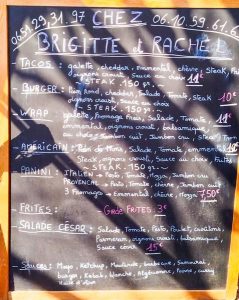 06.59.29.31.97 CHEZ 06.10.59.61.6
BRIGITTE et RACHEL
- TACOS : galette, cheddar, Emmental, chèvre, Steak
oignons crousti, Sauce au choix 11€
- STEAK 150 gr. -
- BURGER : Bun Rond, cheddar, Salade, Tomate, Steak 10€
oignons crousti, Sauce au choix
- STEAK 150 gr. -
- WRAP : galette, fromage Frais, Salade, Tomate,
emmental, oignons crousti, balsamique,
- AMERICAIN : Pain de Mons, Salade, Tomate, emmental
Steak, oignons crousti, Sauce au choix
- STEAK 150 gr. -
- PANINI : ITALIEN → Pesto, Tomate, Mozza, Jambon cru
PROVENCAL → Pesto, Tomate, chèvre, Jambon cuit
3 Fromages → Emmental, chèvre, Mozza 7,50€
- FRITES : Grde FRITES 3€
- SALADE CÉSAR : Salade, Tomate, Pesto, Poulet, croûtons,
Parmesan, oignons crousti, balsamique,
Sauce césar 15€
- SAUCES : Mayo, Ketchup, Moutarde, barbecue, Samouraï,
burger, Kebab, blanche, Algérienne, Poivre, curry